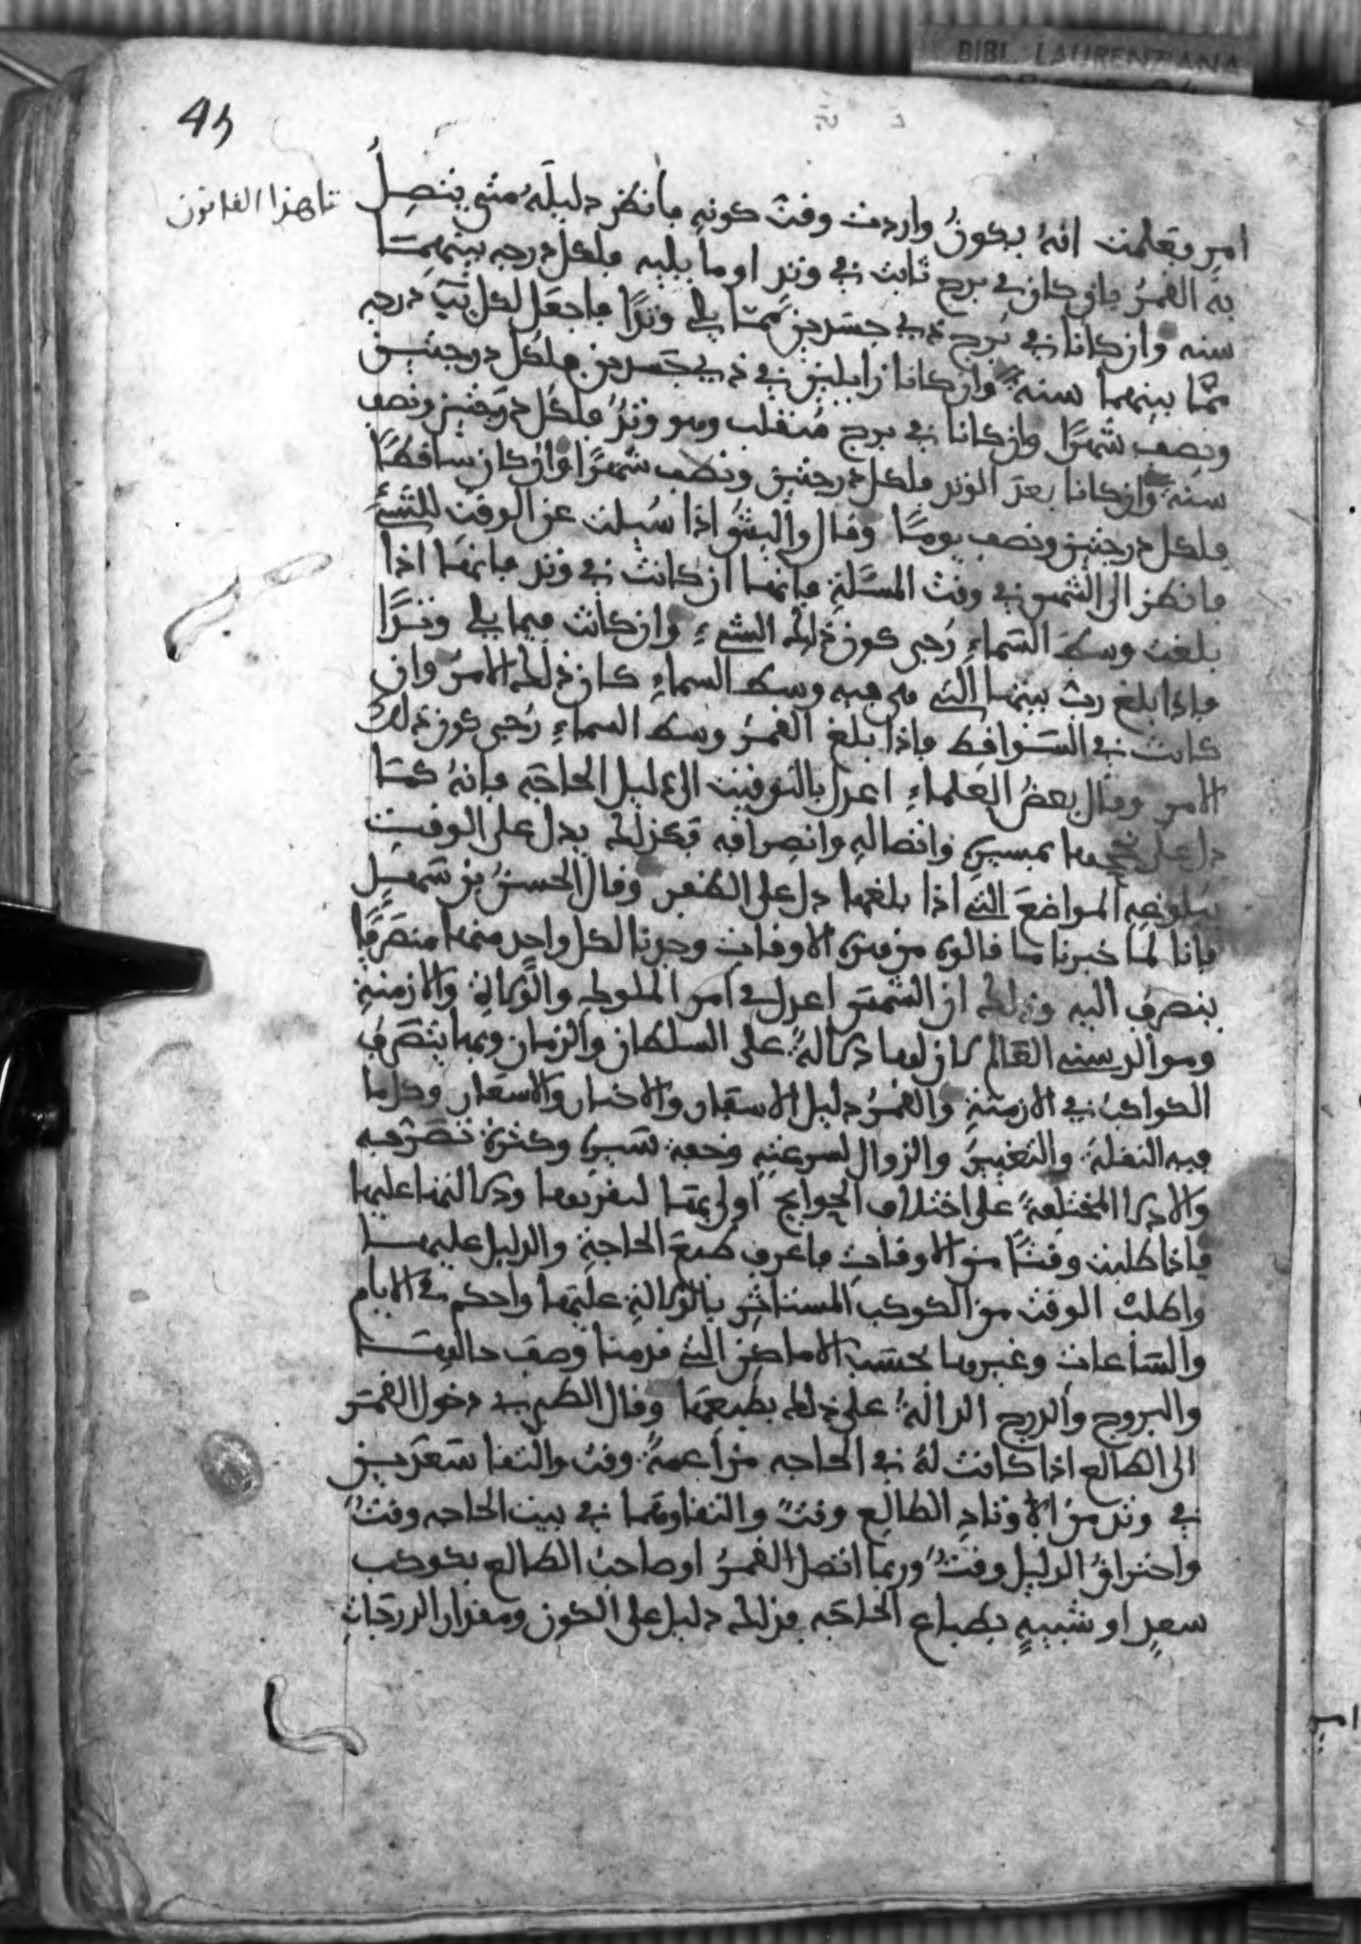 BIBL. LAURENZIANA
45
تا هذا القانون
امر فعلمت انه يكون واردت وقت كونه فانظر دليله متى يتصل
به القمر فان كان في برج ثابت في وتد او ما يليه فلكل درجه بينهما
سنه وان كانا في برج ذي جسدين مما يلي وتدا فاجعل لكل درجه
مما بينهما سنة وان كانا زايلين في ذي جسدين فلكل درجتين
ونصف شهرا وان كانا في برج منقلب وهو وتد فلكل درجتين ونصف
سنة وان كانا بعد الوتد فلكل درجتين ونصف شهرا وان كان ساقطا
فلكل درجتين ونصف يوما وقال واليس اذا سيلت عن الوقت للشيء
فانظر الى الشمس في وقت المسلة فانها ان كانت في وتد فانها اذا
بلغت وسط السماء رجى كون ذلك الشيء وان كانت فيما يلي وتدا
فاذا بلغ رب بيتها الذي هي فيه وسط السماء كان ذلك الامر وان
كانت في السواقط فاذا بلغ القمر وسط السماء رجى كون ذلك
الامر وقال بعض العلماء اعدل بالتوقيت الى دليل الحاجة فانه كما
دل على نجحها بمسيره واتصاله وانصرافه فكذلك يدل على الوقت
ببلوغه المواضع التي اذا بلغها دل على الظفر وقال الحسن بن سهل
فانا لما خبرنا ما قالوه من هذه الاوقات وجدنا لكل واحد منها متصرفا
ينصرف اليه وذلك ان الشمس اعدل في امر الملوك والوكالة والازمنة
وموالد سنى العالم كان لها دلالة على السلطان والزمان وبها يتصرف
الكواكب في الازمنة والقمر دليل الاسفار والاخبار والاسعار وكل ما
فيه النقلة والتغيير والزوال لسرعته وخفة سيره وكثرة تصرفه
والادلا المختلفة على اختلاف الحوايج اولى بها لتفردها ودلالتها عليها
فاذا طلبت وقتا من الاوقات فاعرف طبع الحاجة والدليل عليها
واطلب الوقت من الكوكب المستاثر بالدلالة عليها واحكم في الايام
والساعات وغيرها بحسب الاماكن التي قدمنا وصف حاليها
والبروج والدرج الدالة على ذلك بطبعها وقال الطبري دخول القمر
الى الطالع اذا كانت له في الحاجه مزاعمة وقت والتقا سعدين
في وتد من اوتاد الطالع وقت والتقاوهما في بيت الحاجه وقت
واحتراق الدليل وقت وربما اتصل القمر او صاحب الطالع بكوكب
سعد او شبيه بطباع الحاجة فذلك دليل على الكون ومقدار الدرجات